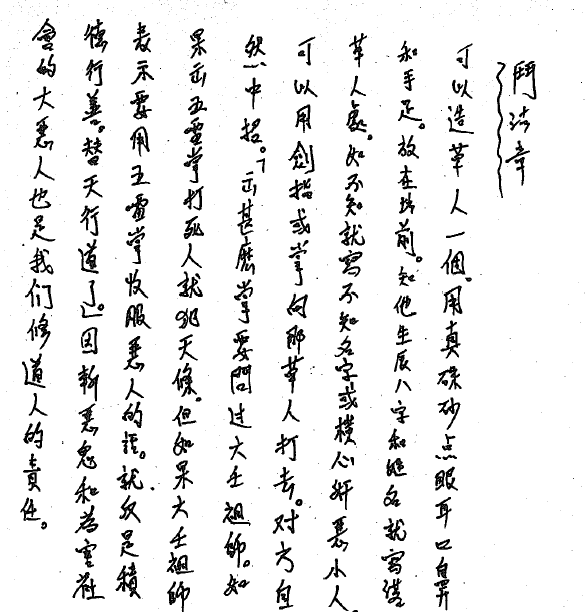 鬥法章
可以造草人一個。用真硃砂点眼耳口鼻
和手足。放在坛前。知他生辰八字和姓名就寫落
草人處。如不知就寫不知名字或橫心奸惡小人。
可以用劍指或掌向那草人打去。对方自
然中招。「出甚麽掌要問过六壬祖師。如
果出五雷掌打死人就犯天條。但如果六壬祖師
表示要用五雷掌收服惡人的話。就反是積
德行善。替天行道了」因斬惡鬼和為害社
會的大惡人也是我们修道人的責任。